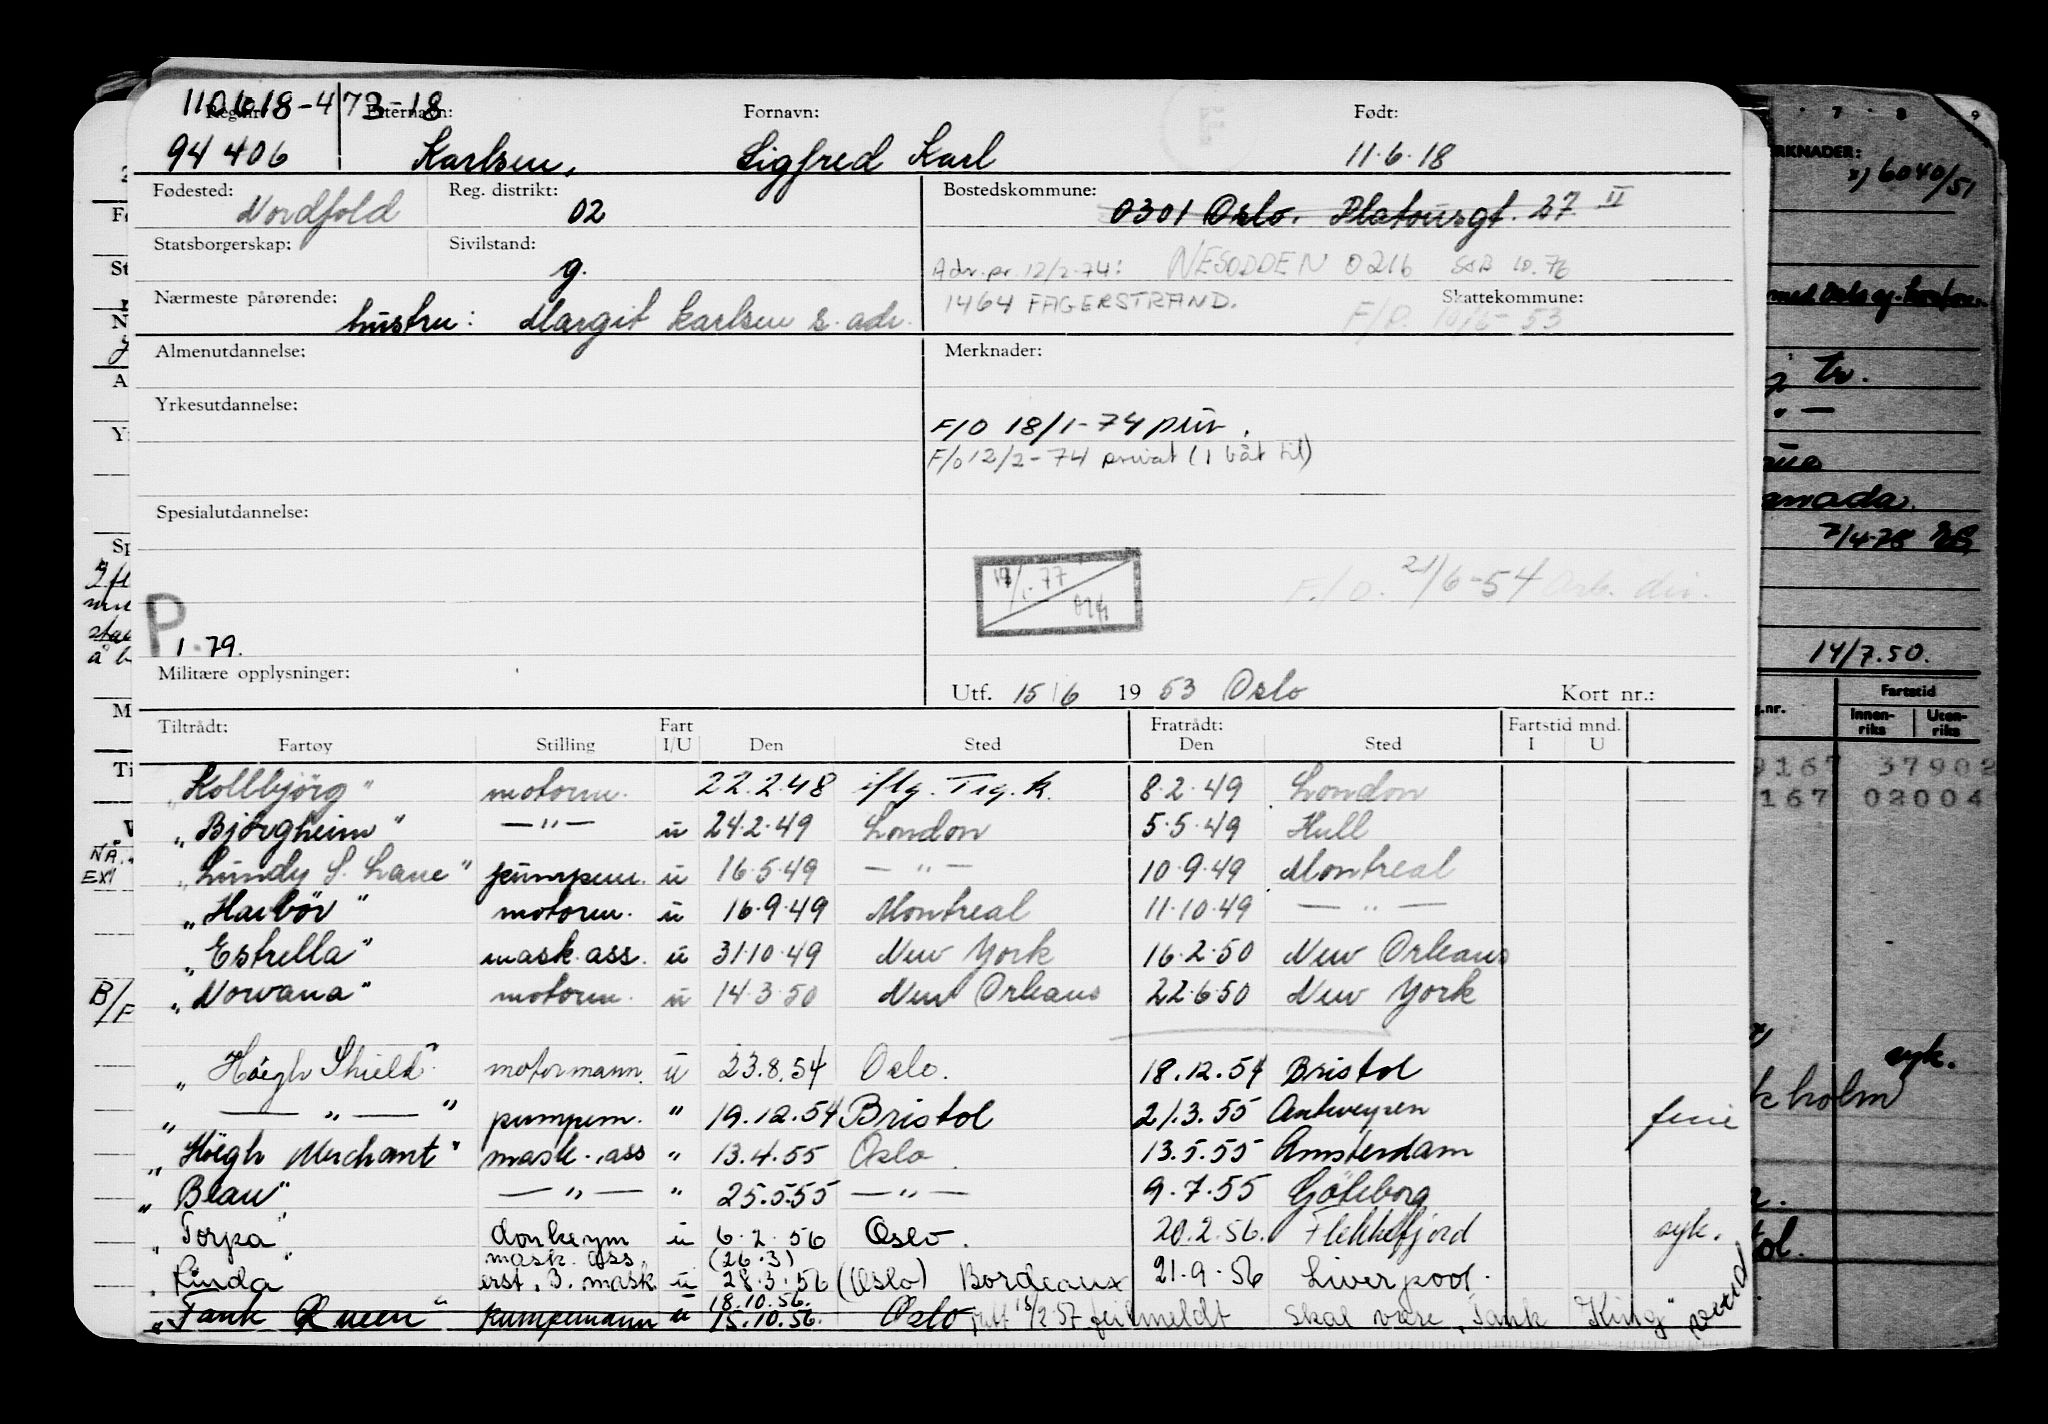 110618-473-18
Reg.nr. Etternavn: Fornavn: F Født:
94 406 Karlsen, Sigfred Karl 11.6.18
Fødested: Nordfold Reg. distrikt: 02 Bostedskommune: 0301 Oslo. Platousgt. 27 II
Statsborgerskap: Sivilstand: g. Adr. pr. 12/2-74: NESODDEN 0216
Nærmeste pårørende: hustru: Margit Karlsen s. adr. 1464 FAGERSTRAND. Skattekommune:
Almenutdannelse: Merknader:
Yrkesutdannelse:
F/O 18/1-74 priv.
F/o 12/2-74 privat (1 båt til)
Spesialutdannelse:
F./O. 21/6-54
P 1.79.
Militære opplysninger: Utf. 15/6 1953 Oslo Kort nr.:
Tiltrådt: Fart Fratrådt: Fartstid mnd.
Fartøy Stilling I/U Den Sted Den Sted I U
"Kollbjörg" motorm. 22.2.48 iflg. Trg.k. 8.2.49 London
"Bjørgheim" —"— u 24.2.49 London 5.5.49 Hull
"Lundy S. Lane" pumpem. u 16.5.49 —"— 10.9.49 Montreal
"Havbör" motorm. u 16.9.49 Montreal 11.10.49 —"—
"Estrella" mask.ass. u 31.10.49 New York 16.2.50 New Orleans
"Norvana" motorm. u 14.3.50 New Orleans 22.6.50 New York
"Höegh Shield" motormann. u 23.8.54 Oslo. 18.12.54 Bristol
" —"— " pumpem. " 19.12.54 Bristol 21.3.55 Antwerpen ferie
"Höegh Merchant" mask.ass " 13.4.55 Oslo. 13.5.55 Amsterdam
"Beau" —"— " 25.5.55 —"— 9.7.55 Göteborg
"Torpa" donkeym u 6.2.56 Oslo. 20.2.56. Flekkefjord syk.
mask. ass (26.3)
"Linda" erst. 3. mask u 28.3.56 (Oslo) Bordeaux 21.9.56 Liverpool.
18.10.56.
"Tank Queen" pumpemann u 15.10.56. Oslo feilmeldt skal være "Tank King"
RKNADER:
x) 6040/51
tr.
anada.
7/4-78
14/7.50.
g.nr. Fartstid
Innenriks Utenriks
9167 37902
167 02004
syk.
kholm